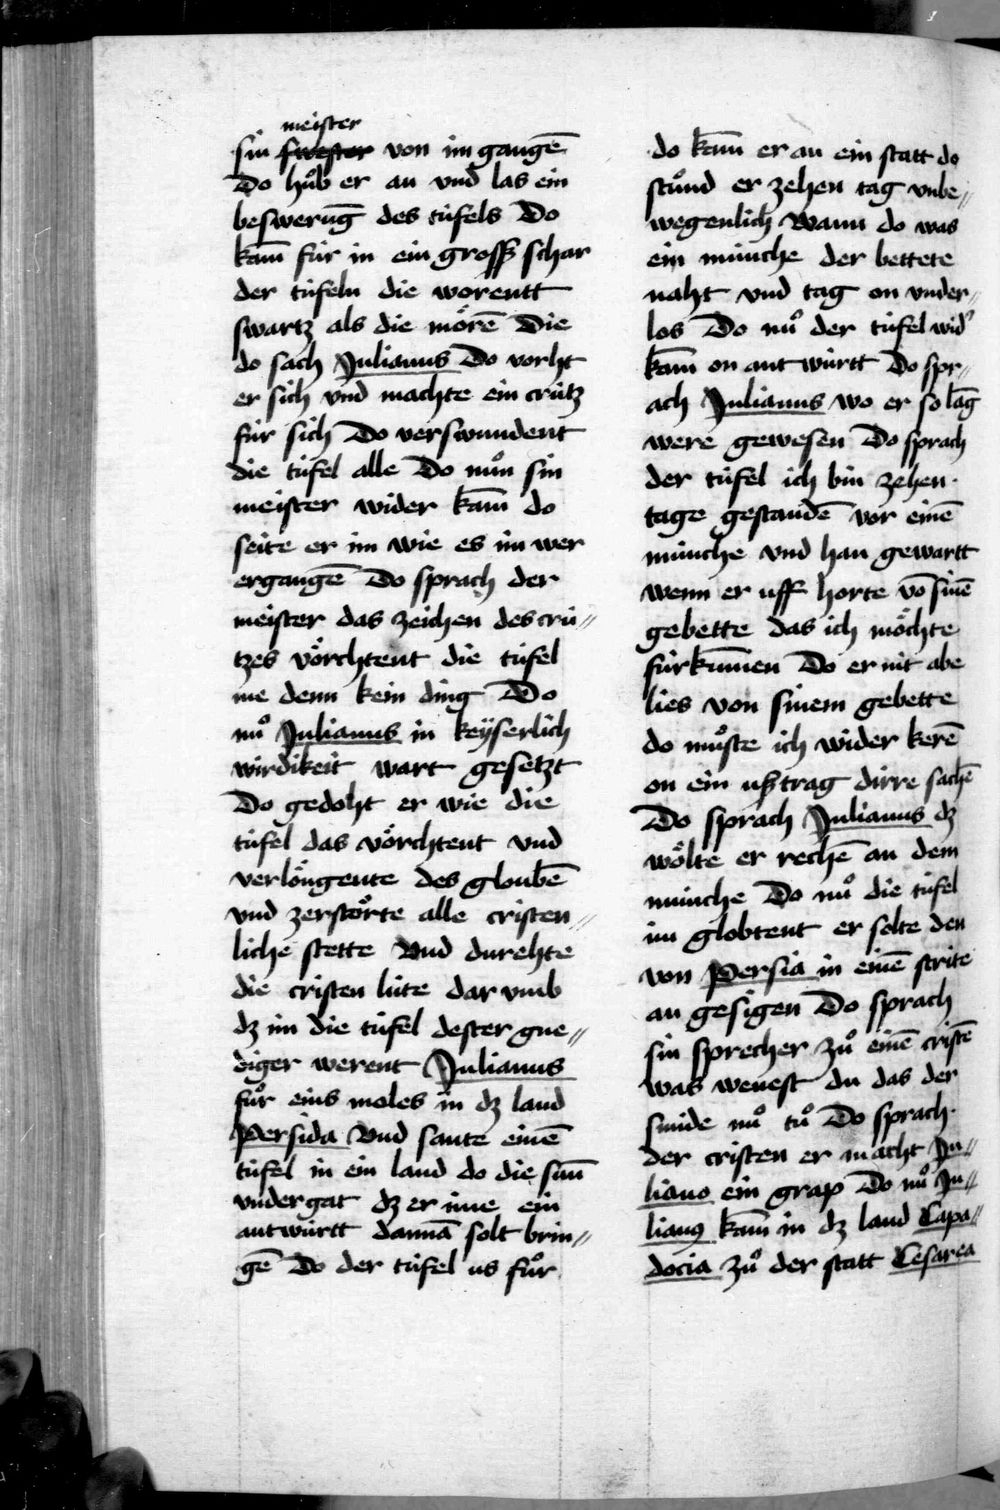 meister
sin swester von im gangē
Do hůb er an vnd las ein
beswerūg des tüfels Do
kam̄ für in ein gross schar
der tüfeln die worentt
swartz als die mörē Die
do sach Julianus Do vorht
er sich vnd machte ein crütz
für sich Do verswundent
die tüfel alle Do nůn sin
meister wider kam̄ do
seite er im wie es im wer
ergangē Do sprach der
meister das zeichen des crü〃
tzes vörchtent die tüfel
me denn kein ding Do
nů Julianus in keyserlich
wirdikeit wart gesetzt
Do gedoht er wie die
tüfel das vörchtent vnd
verlöngente des gloubē
vnd zerstörte alle cristen〃
liche stette Vnd durehte
die cristen lüte dar vmb
dz im die tüfel dester gne〃
diger werent Julianus
fůr eins moles in dz land
Persida Vnd sante einē
tüfel in ein land do die sun̄
vnder gat dz er ime ein
antwürtt dannā solt brin〃
gē Do der tüfel us fůr
do kam̄ er an ein statt do
stůnd er zehen tag vnbe〃
wegenlich Wann do was
ein münche der bettete
naht vnd tag on vnder〃
los Do nů der tüfel wid'
kam̄ on antwürtt Do spr〃
ach Julianus wo er so lāg
were gewesen Do sprach
der tüfel ich bin zehen
tage gestandē vor einē
münche vnd han gewartt
wenn er uff horte vō sinē
gebette das ich möchte
fürkum̄en Do er nit abe
lies von sinem gebette
do můste ich wider kerē
on ein ustrag dirre sachē
Do sprach Julianus dz
wölte er rechē an dem
münche Do nů die tüfel
im globtent er solte den
von Persia in einē strite
an gesigen Do sprach
sin sprecher zů einē cristē
was wenest du das der
smide nů tů Do sprach
der cristen er macht Ju〃
liano ein grap Do nů Ju〃
lianꝰ kam̄ in dz land Capa〃
docia zů der statt Cesarea